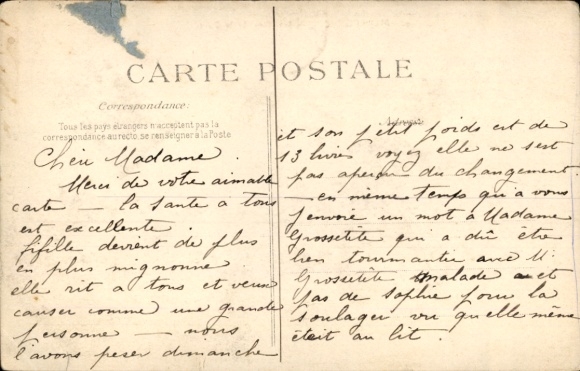 CARTE POSTALE
Correspondance:
Tous les pays étrangers n'acceptent pas la
correspondance au recto, se renseigner à la Poste
Adresse
Cher Madame.
Merci de votre aimable
carte — la sante a tous
est excellente.
fifille devient de plus
en plus mignonne
elle rit a tous et veux
causer comme une grande
personne — nous
l'avons peser dimanche
et son petit poids est de
13 livres voyez elle ne s'est
pas aperçu du changement.
— en même temps qu'a vous
j'envoie un mot à Madame
Grossetête qui a dû être
bien tourmantée avec Mr
Grossetête malade et
pas de Sophie pour la
soulager vu qu'elle même
était au lit.